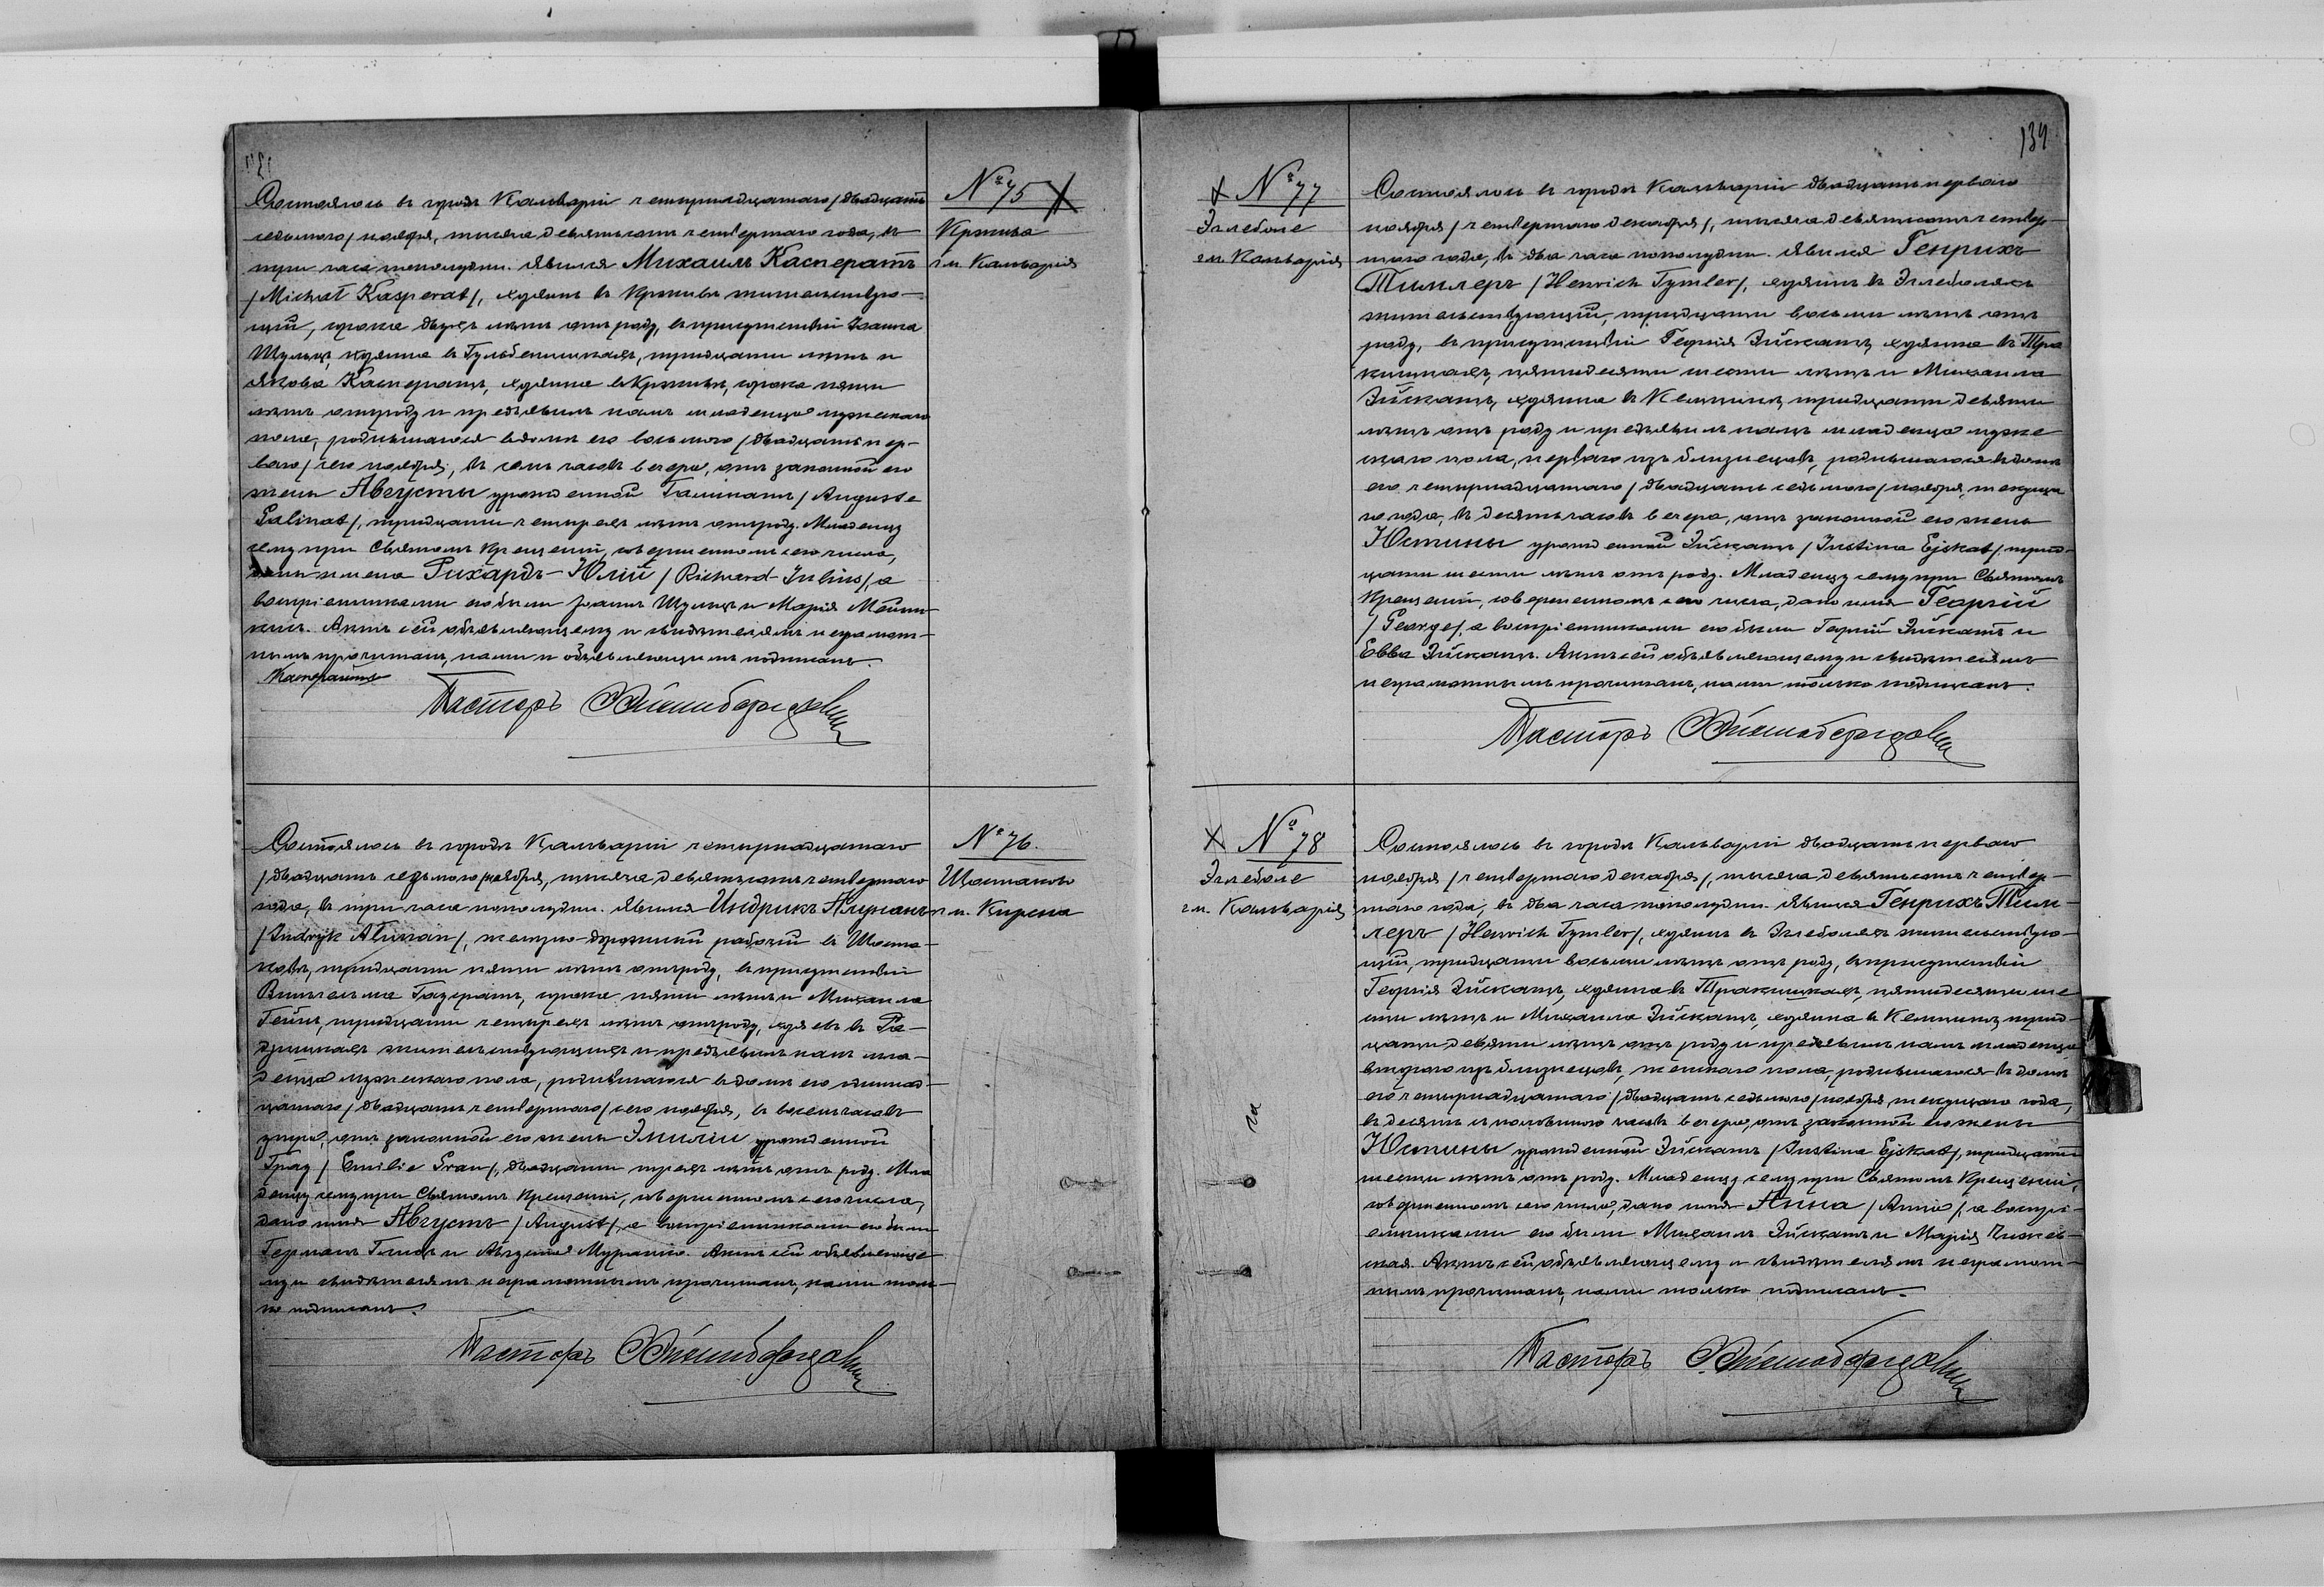 Состоялось въ городѣ Кальваріи четырнадцатаго /двадцать
седьмого/ ноября, тысяча девятьсотъ четвертаго года, въ
три часа пополудни. Явился Михаилъ Касператъ
/Michał Kasperat/, хозяинъ въ жительствую-
щій, сорока двухъ лѣтъ отъ роду, въ присутствіи Іоанна
Шульцъ, хозяина въ тридцати лѣтъ и
Якова Касператъ, хозяина въ сорока пяти
лѣтъ отъ роду и предъявилъ намъ младенца мужескаго
пола, родившагося въ домѣ его восьмого /двадцать пер-
ваго/ сего ноября, въ семь часовъ вечера, отъ законной его
жены Августы урожденной Галинатъ /Auguste
Galinat/, тридцати четырехъ лѣтъ отъ роду. Младенцу
сему при Святомъ Крещеніи, совершенномъ сего числа,
даны имена Рихардъ-Юлій /Richard-Julius/, а
воспріемниками его были Іоаннъ Шульцъ и Марія
Актъ сей объявляющему и свидѣтелямъ неграмот-
нымъ прочитанъ, нами и объявляющимъ подписанъ.
Касператъ
Пасторъ
№ 75
г.м. Кальварія
Состоялось въ городѣ Кальваріи четырнадцатаго
/двадцать седьмого/ ноября, тысяча девятьсотъ четвертаго
года, въ три часа пополудни. Явился Индрикъ Алунанъ
/Indryk Alunan/, желѣзно-дорожный рабочій въ Шоста-
ковѣ, тридцати пяти лѣтъ отъ роду, въ присутствіи
Вильгельма сорока пяти лѣтъ и Михаила
тридцати четырехъ лѣтъ отъ роду, хозяевъ въ
жительствующихъ и предъявилъ намъ мла-
денца мужескаго пола, родившагося въ домѣ его одиннад-
цатаго /двадцать четвертаго/ сего ноября, въ восемь часовъ
утра, отъ законной его жены Эмиліи урожденной
/Emilie двадцати трехъ лѣтъ отъ роду. Мла-
денцу сему при Святомъ Крещеніи, совершенномъ сего числа,
дано имя Августъ /August/, а воспріемниками его были
Германъ и Августа Актъ сей объявляюще-
му и свидѣтелямъ неграмотнымъ прочитанъ, нами толь-
ко подписанъ.
Пасторъ
№ 76.
Шостаково
г.м. Кирсна
139
№ 77
Эглеболе
г.м. Кальварія
Состоялось въ городѣ Кальваріи двадцать перваго
ноября /четвертаго декабря/, тысяча девятьсотъ четвер-
таго года, въ два часа пополудни. Явился Генрихъ
Тимлеръ /Henrich Tymler/, хозяинъ въ Эглеболяхъ
жительствующій, тридцати восьми лѣтъ отъ
роду, въ присутствіи Георгія Эйскатъ, хозяина въ Тра-
кишкахъ, пятидесяти шести лѣтъ и Михаила
Эйскатъ, хозяина въ тридцати девяти
лѣтъ отъ роду и предъявилъ намъ младенца муже-
скаго пола, перваго изъ близнецовъ, родившагося въ домѣ
его четырнадцатаго /двадцать седьмого/ ноября, текуща-
го года, въ десять часовъ вечера, отъ законной его жены
Юстины урожденной Эйскатъ /Justina Ejskat/, трид-
цати шести лѣтъ отъ роду. Младенцу сему при Святомъ
Крещеніи, совершенномъ сего числа, дано имя Георгій
/George/, а воспріемниками его были Георгій Эйскатъ и
Евва Эйскатъ. Актъ сей объявляющему и свидѣтелямъ
неграмотнымъ прочитанъ, нами только подписанъ.
Пасторъ
№ 78
Эглеболе
г.м. Кальварія
Состоялось въ городѣ Кальваріи двадцать перваго
ноября /четвертаго декабря/, тысяча девятьсотъ четвер-
таго года, въ два часа пополудни. Явился Генрихъ Тим-
леръ /Henrich Tymler/, хозяинъ въ Эглеболяхъ жительствую-
щій, тридцати восьми лѣтъ отъ роду, въ присутствіи
Георгія Эйскатъ, хозяина въ Тракишкахъ, пятидесяти ше-
сти лѣтъ и Михаила Эйскатъ, хозяина въ трид-
цати девяти лѣтъ отъ роду и предъявилъ намъ младенца
второго изъ близнецовъ, женскаго пола, родившагося въ домѣ
его четырнадцатаго /двадцать седьмого/ ноября, текущаго года,
въ десять съ половиною часовъ вечера, отъ законной его жены
Юстины урожденной Эйскатъ /Justina Ejskat/, тридцати
шести лѣтъ отъ роду. Младенцу сему при Святомъ Крещеніи,
совершенномъ сего числа, дано имя Анна /Anna/, а воспрі-
емниками его были Михаилъ Эйскатъ и Марія
Актъ сей объявляющему и свидѣтелямъ неграмот-
нымъ прочитанъ, нами только подписанъ.
Пасторъ